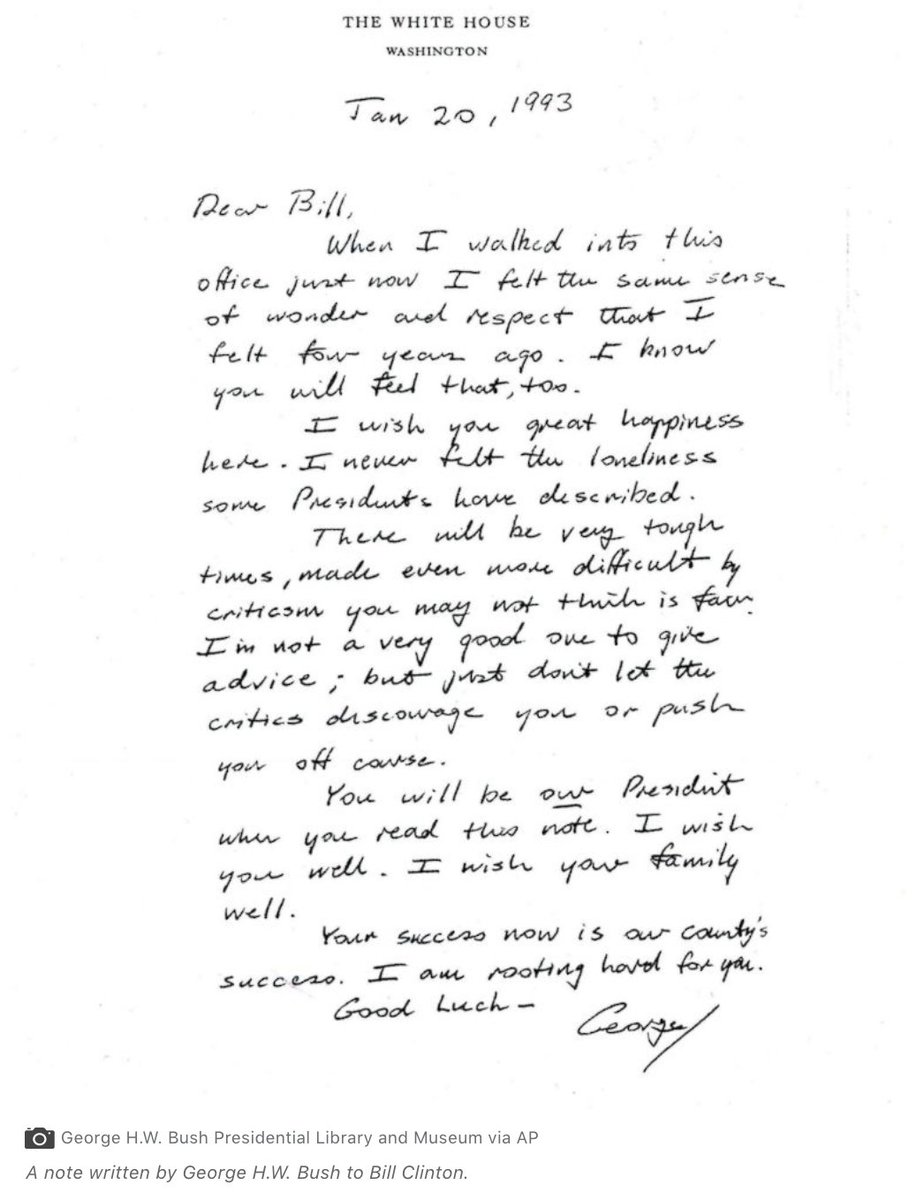 THE WHITE HOUSE
WASHINGTON
Jan 20, 1993
Dear Bill,
When I walked into this
office just now I felt the same sense
of wonder and respect that I
felt four years ago. I know
you will feel that, too.
I wish you great happiness
here. I never felt the loneliness
some Presidents have described.
There will be very tough
times, made even more difficult by
criticism you may not think is fair.
I'm not a very good one to give
advice; but just don't let the
critics discourage you or push
you off course.
You will be our President
when you read this note. I wish
you well. I wish your family
well.
Your success now is our county's
success. I am rooting hard for you.
Good Luck –
George
George H.W. Bush Presidential Library and Museum via AP
A note written by George H.W. Bush to Bill Clinton.